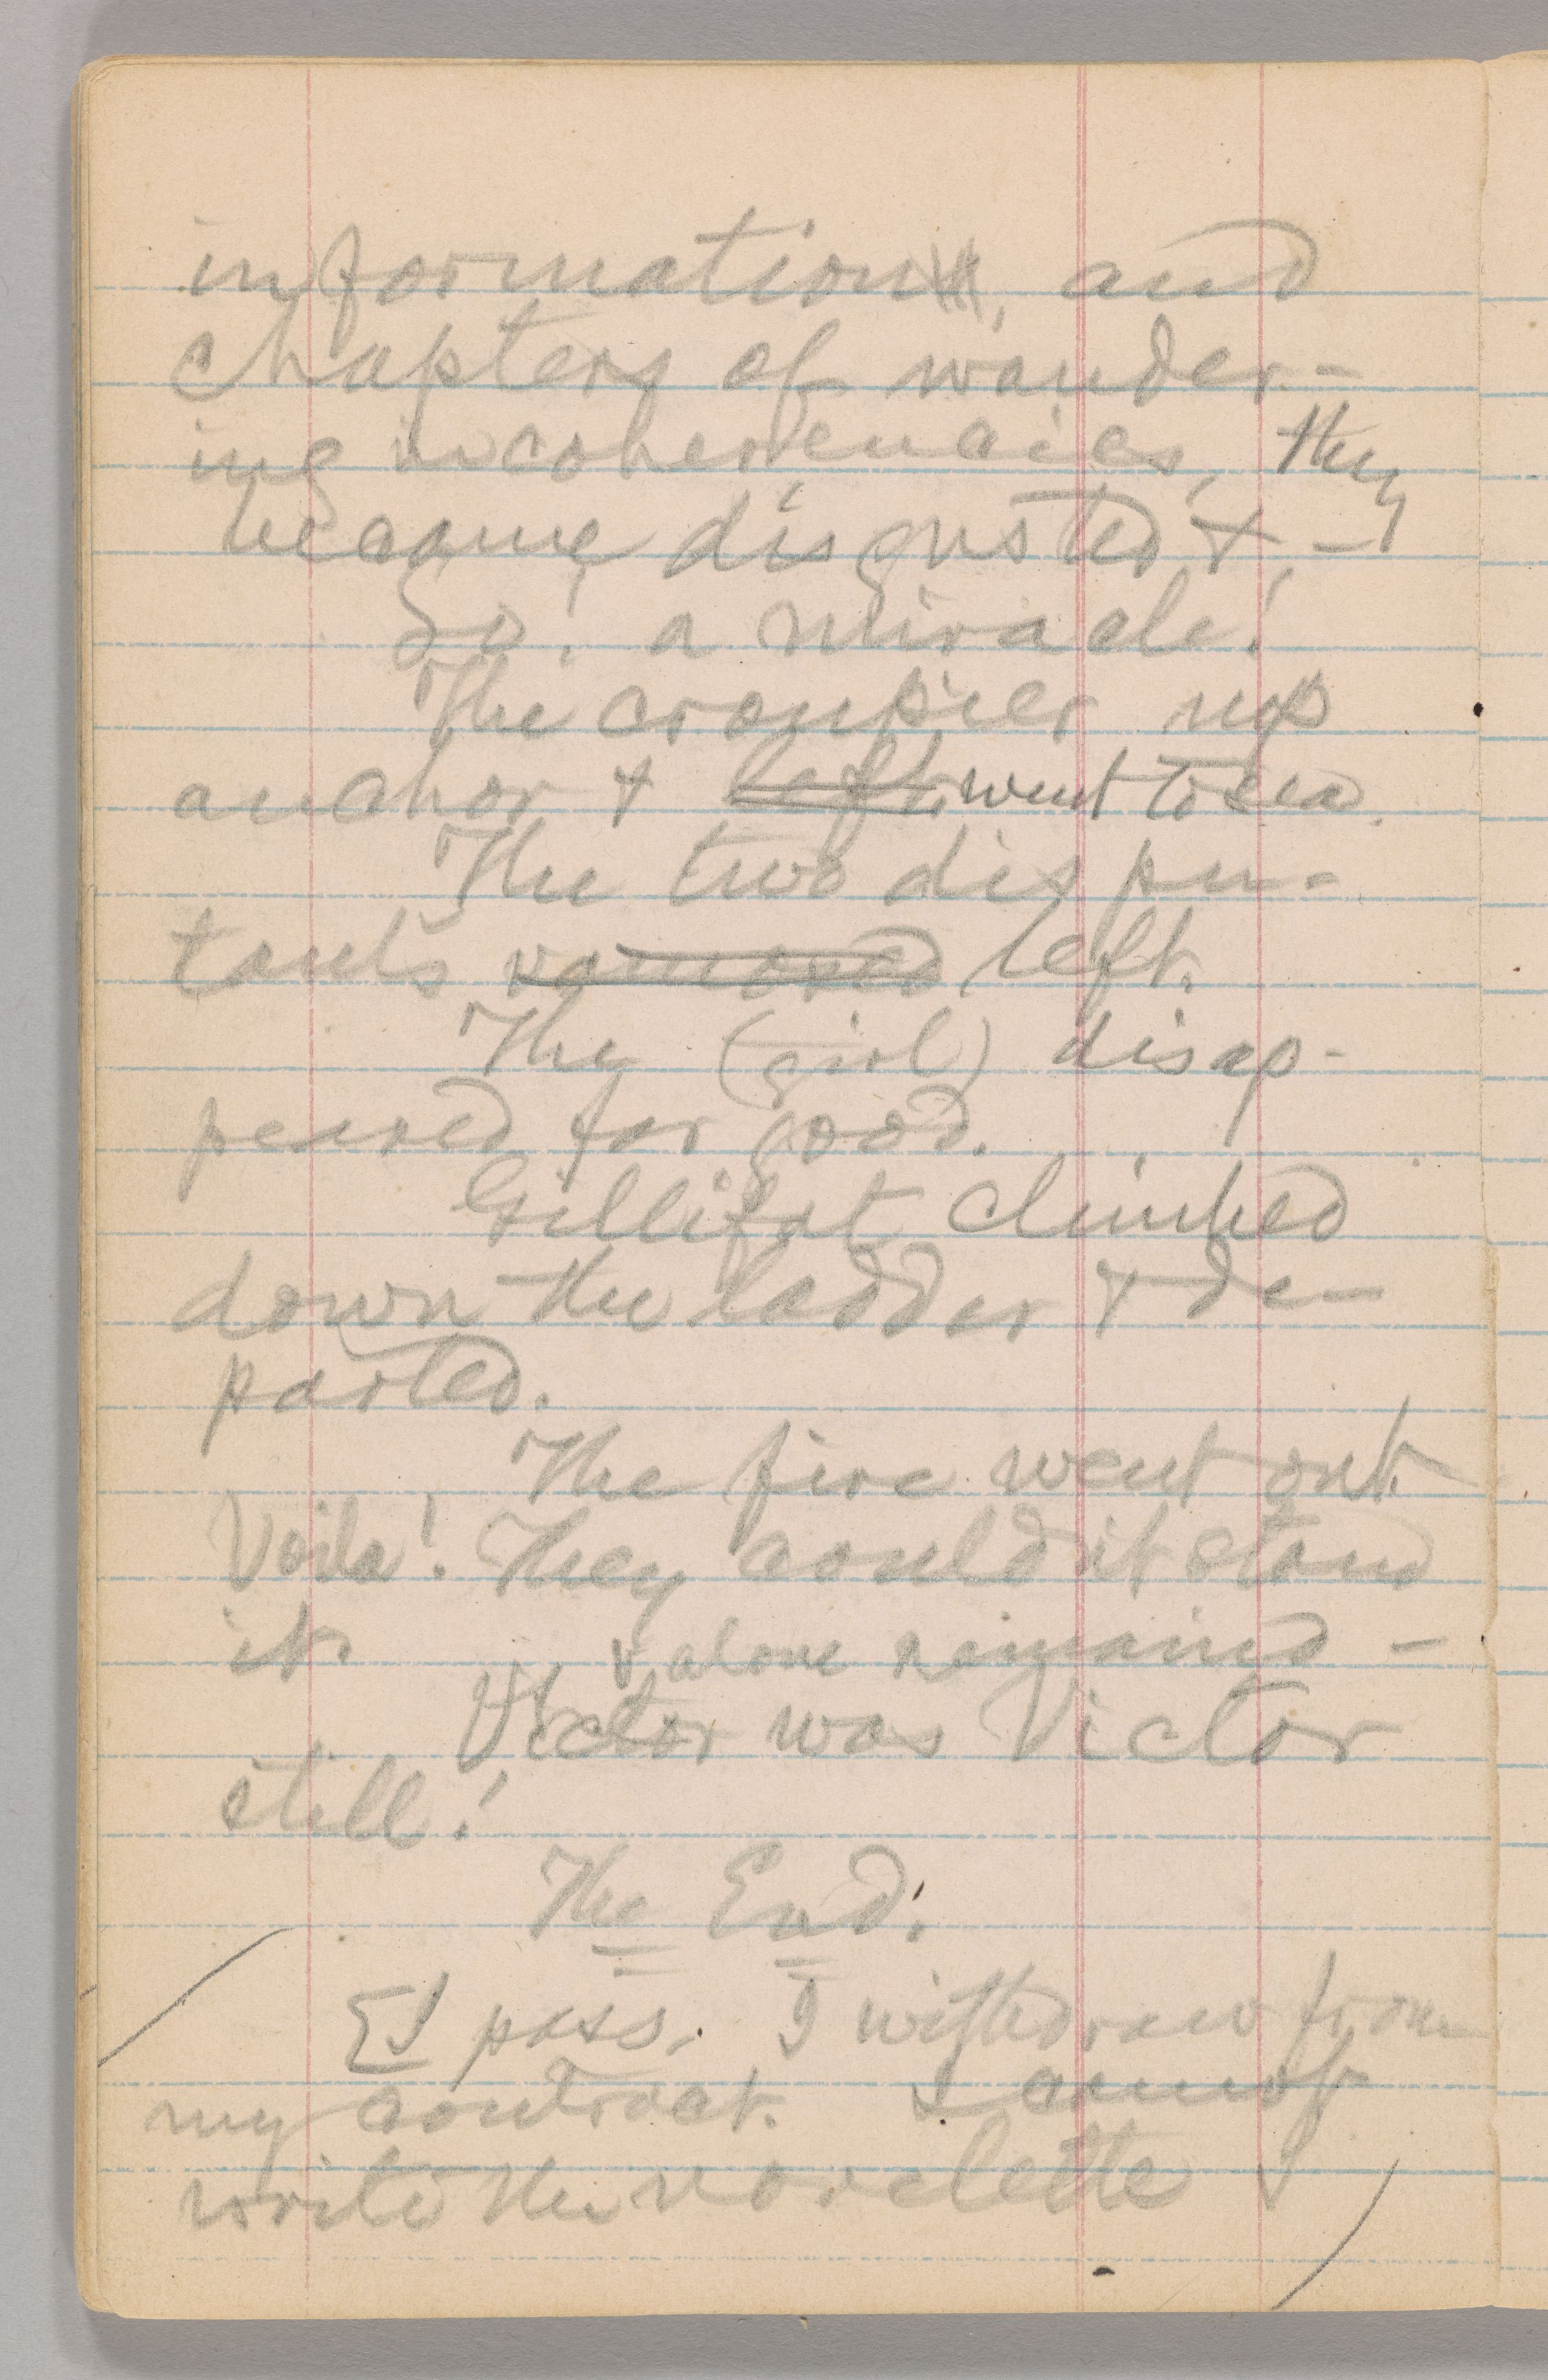 information, and
chapters of wander-
ing incoherencies, they
became disgusted & —
Lo! a miracle!
The croupier up
anchor & left, went to sea.
The two dispu-
tants vamosed left.
The (girl) disap-
peared for good.
Gillifat climbed
down the ladder & de-
parted.
The fire went out.
Voila! They couldn't stand
it.
& alone remained —
Victor was Victor
still!
The End.
[I pass. I withdraw from
my contract. I cannot
write the novelette I